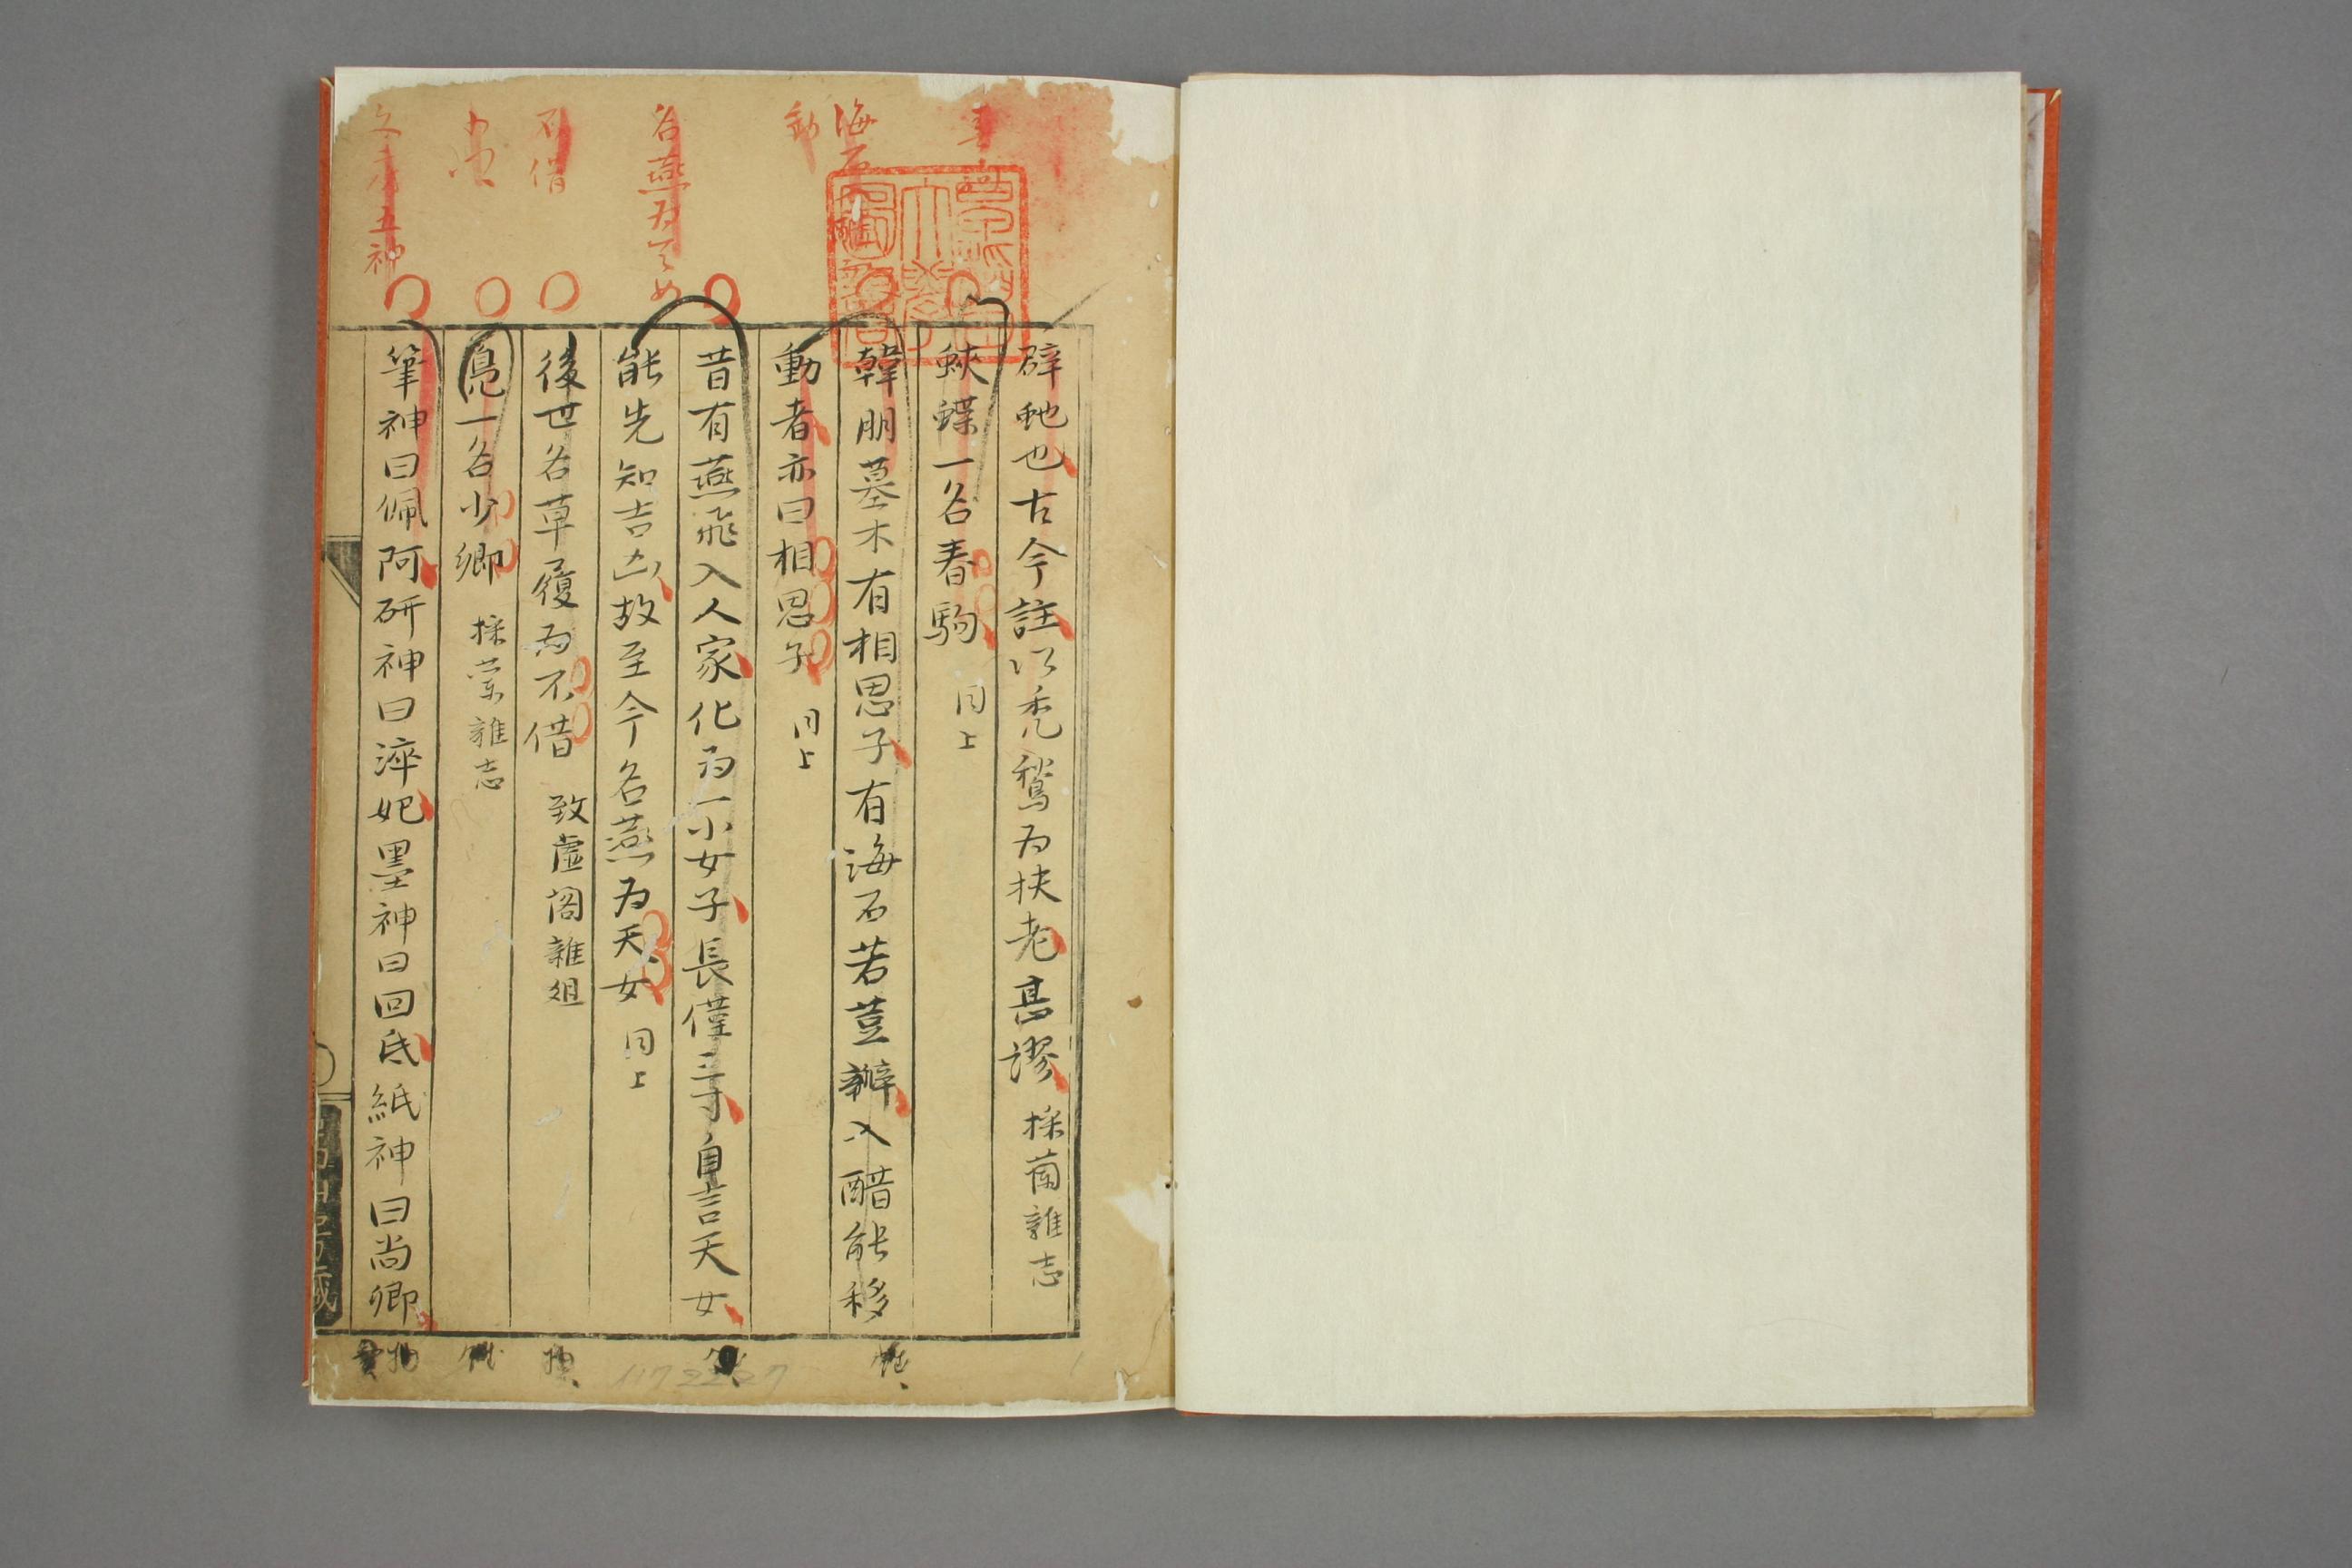 海石
動
名燕为天女
不借
文房五神
辟虵也古今註以秃鶖为扶老甚謬 採蘭雜志
蛺蝶一名春駒 同上
韓朋墓木有相思子有海石若荳瓣入醋能移
動者亦曰相思子 同上
昔有燕飛入人家化为一小女子長僅三寸自言天女
能先知吉凶故至今名燕为天女 同上
後世名草履为不借 致虛閣雜俎
鳧一名少卿 採蘭雜志
筆神曰佩阿硏神曰淬妃墨神曰回氐紙神曰尚卿
1172227